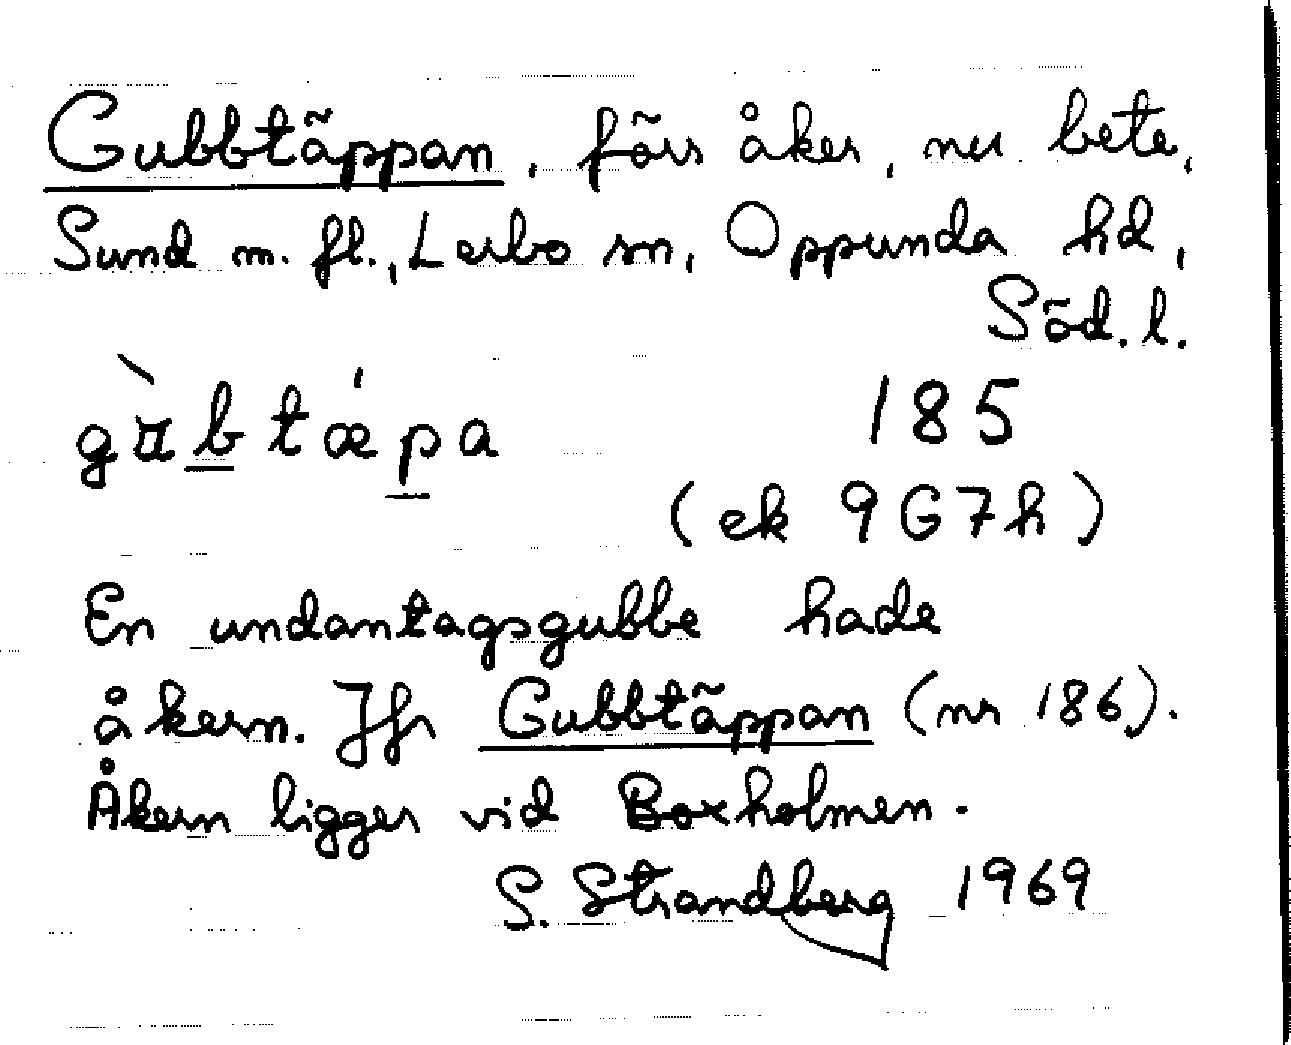 Gubbtäppan, förr åker, nu bete,
Sund m. fl., Lerbo sn, Oppunda hd,
Söd. l.
gɑ̀btǽpa
185
(ek 9G7h)
En undantagsgubbe hade
åkern. Jfr Gubbtäppan (nr 186).
Åkern ligger vid Boxholmen.
S. Strandberg 1969